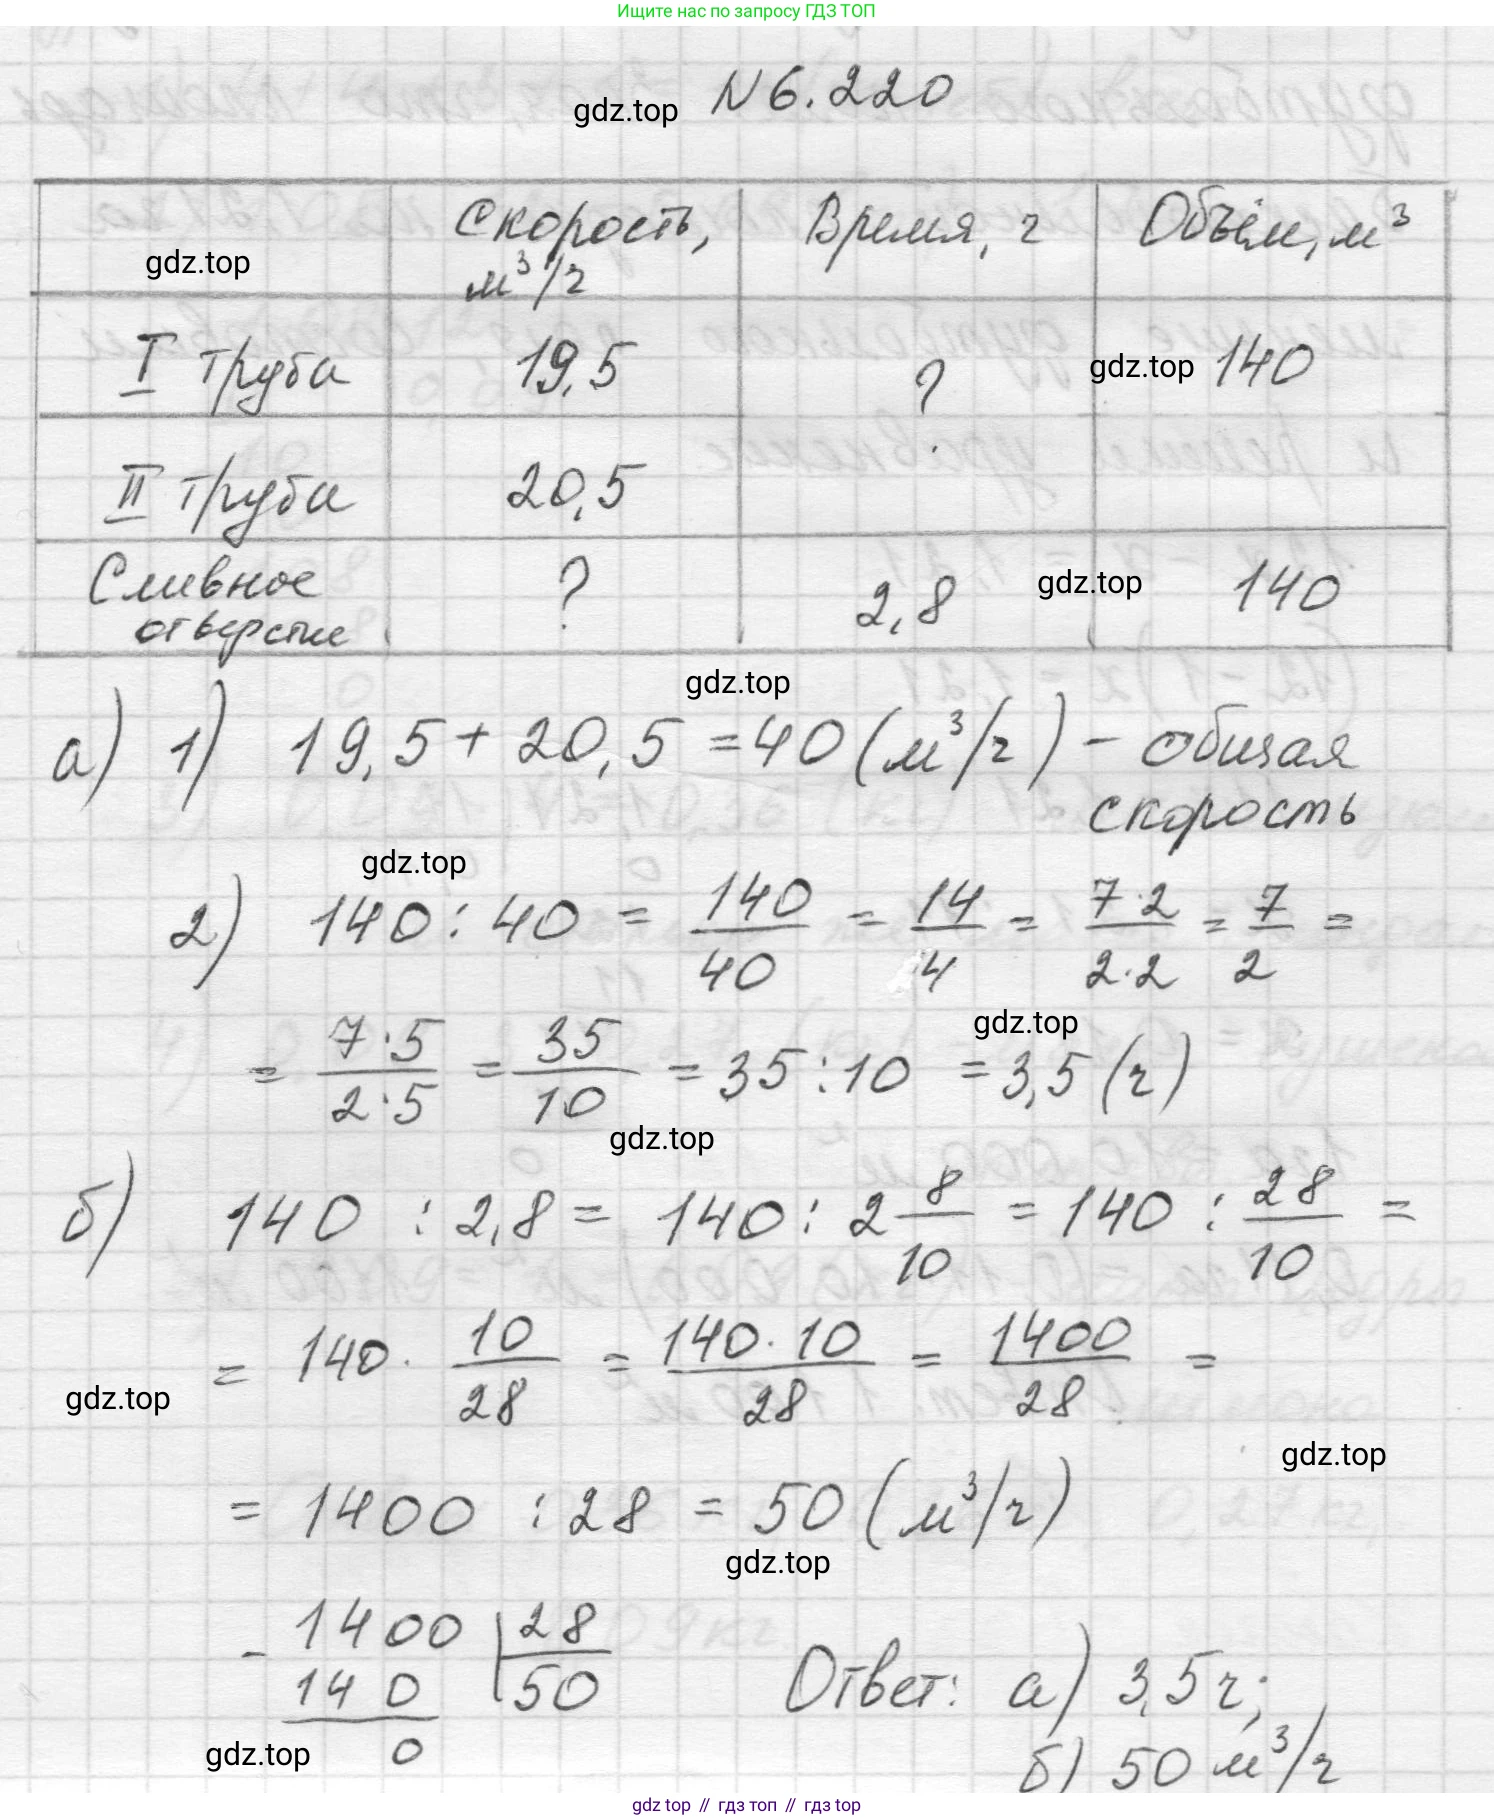 Ищите нас по запросу ГДЗ ТОП
gdz.top № 6.220
gdz.top Скорость, м³/ч Время, ч Объём, м³
I труба 19,5 ? gdz.top 140
II труба 20,5
Сливное отверстие ? 2,8 gdz.top 140
gdz.top
а) 1) 19,5 + 20,5 = 40 (м³/ч) - общая
скорость
gdz.top
2) 140 : 40 = 140/40 = 14/4 = 7·2/2·2 = 7/2 =
gdz.top
= 7·5/2·5 = 35/10 = 35 : 10 = 3,5 (ч)
gdz.top
б) 140 : 2,8 = 140 : 2 8/10 = 140 : 28/10 =
= 140 · 10/28 = 140·10/28 = 1400/28 =
gdz.top
gdz.top
= 1400 : 28 = 50 (м³/ч)
gdz.top
- 1400 | 28
140 | 50
0
gdz.top
Ответ: а) 3,5 ч;
б) 50 м³/ч
gdz top // гдз топ // гдз top